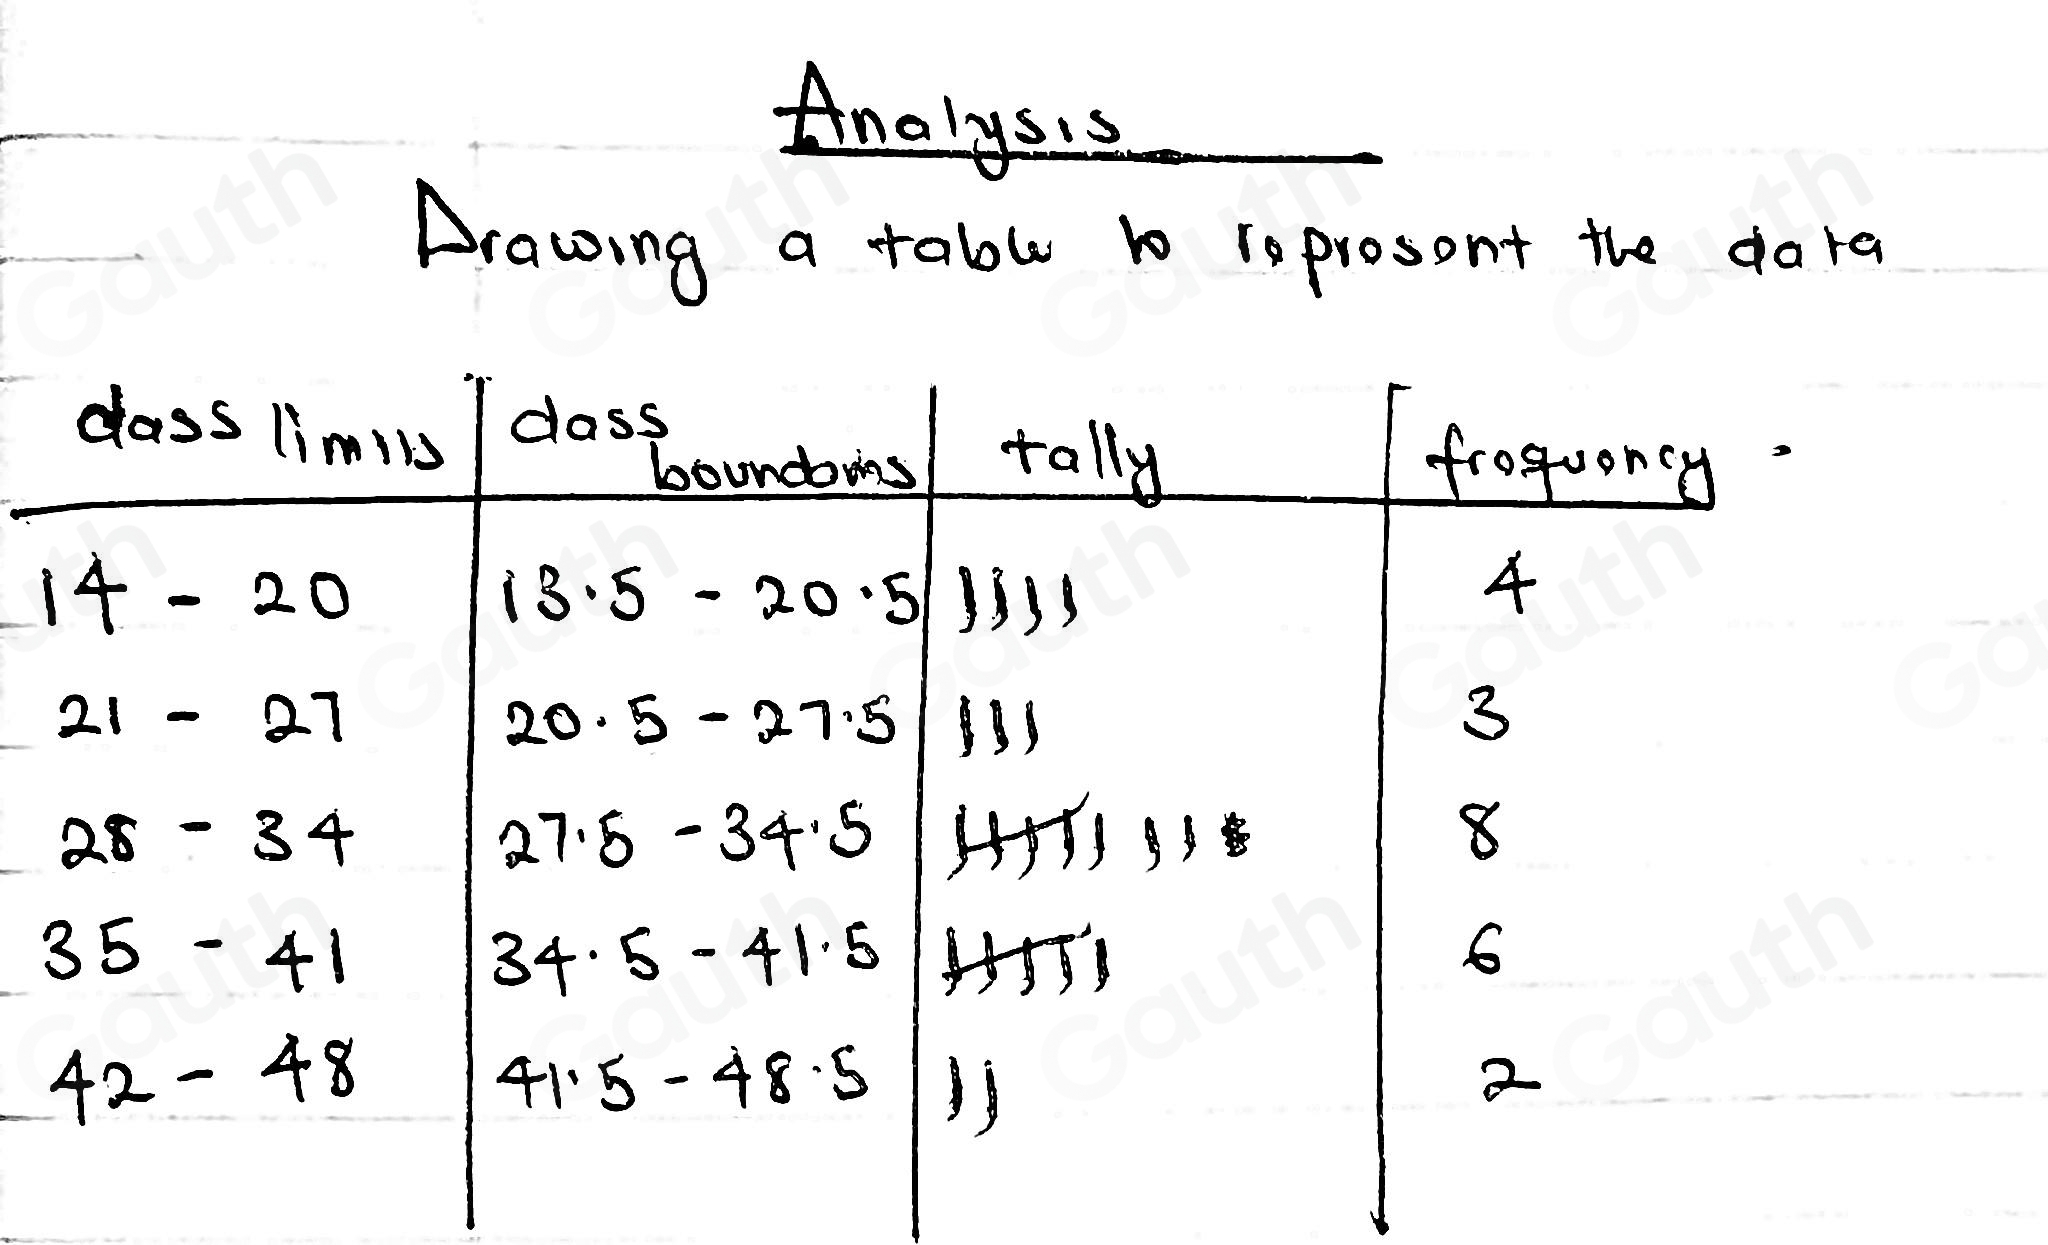 Analysis
Drawing a table to represent the data
class limits | class boundaries | tally | frequency
14 - 20 | 13.5 - 20.5 | |||| | 4
21 - 27 | 20.5 - 27.5 | ||| | 3
28 - 34 | 27.5 - 34.5 | 8
35 - 41 | 34.5 - 41.5 | 6
42 - 48 | 41.5 - 48.5 | || | 2